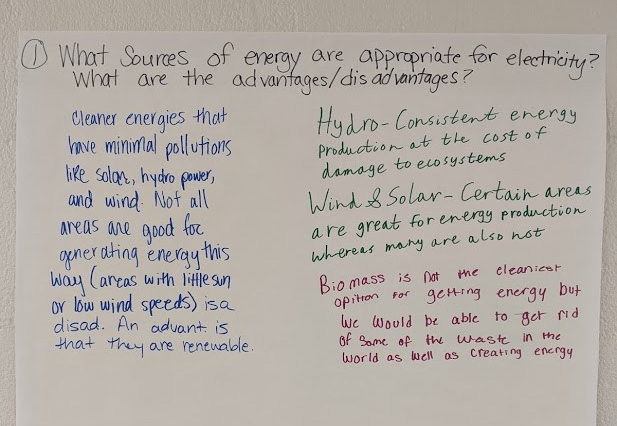 ① What Sources of energy are appropriate for electricity?
What are the advantages/disadvantages?
Cleaner energies that
have minimal pollutions
like solar, hydro power,
and wind. Not all
areas are good for
generating energy this
way (areas with little sun
or low wind speeds) is a
disad. An advant is
that they are renewable.
Hydro - Consistent energy
production at the cost of
damage to ecosystems
Wind & Solar - Certain areas
are great for energy production
whereas many are also not
Biomass is not the cleaniest
opition for getting energy but
we would be able to get rid
of some of the waste in the
world as well as creating energy